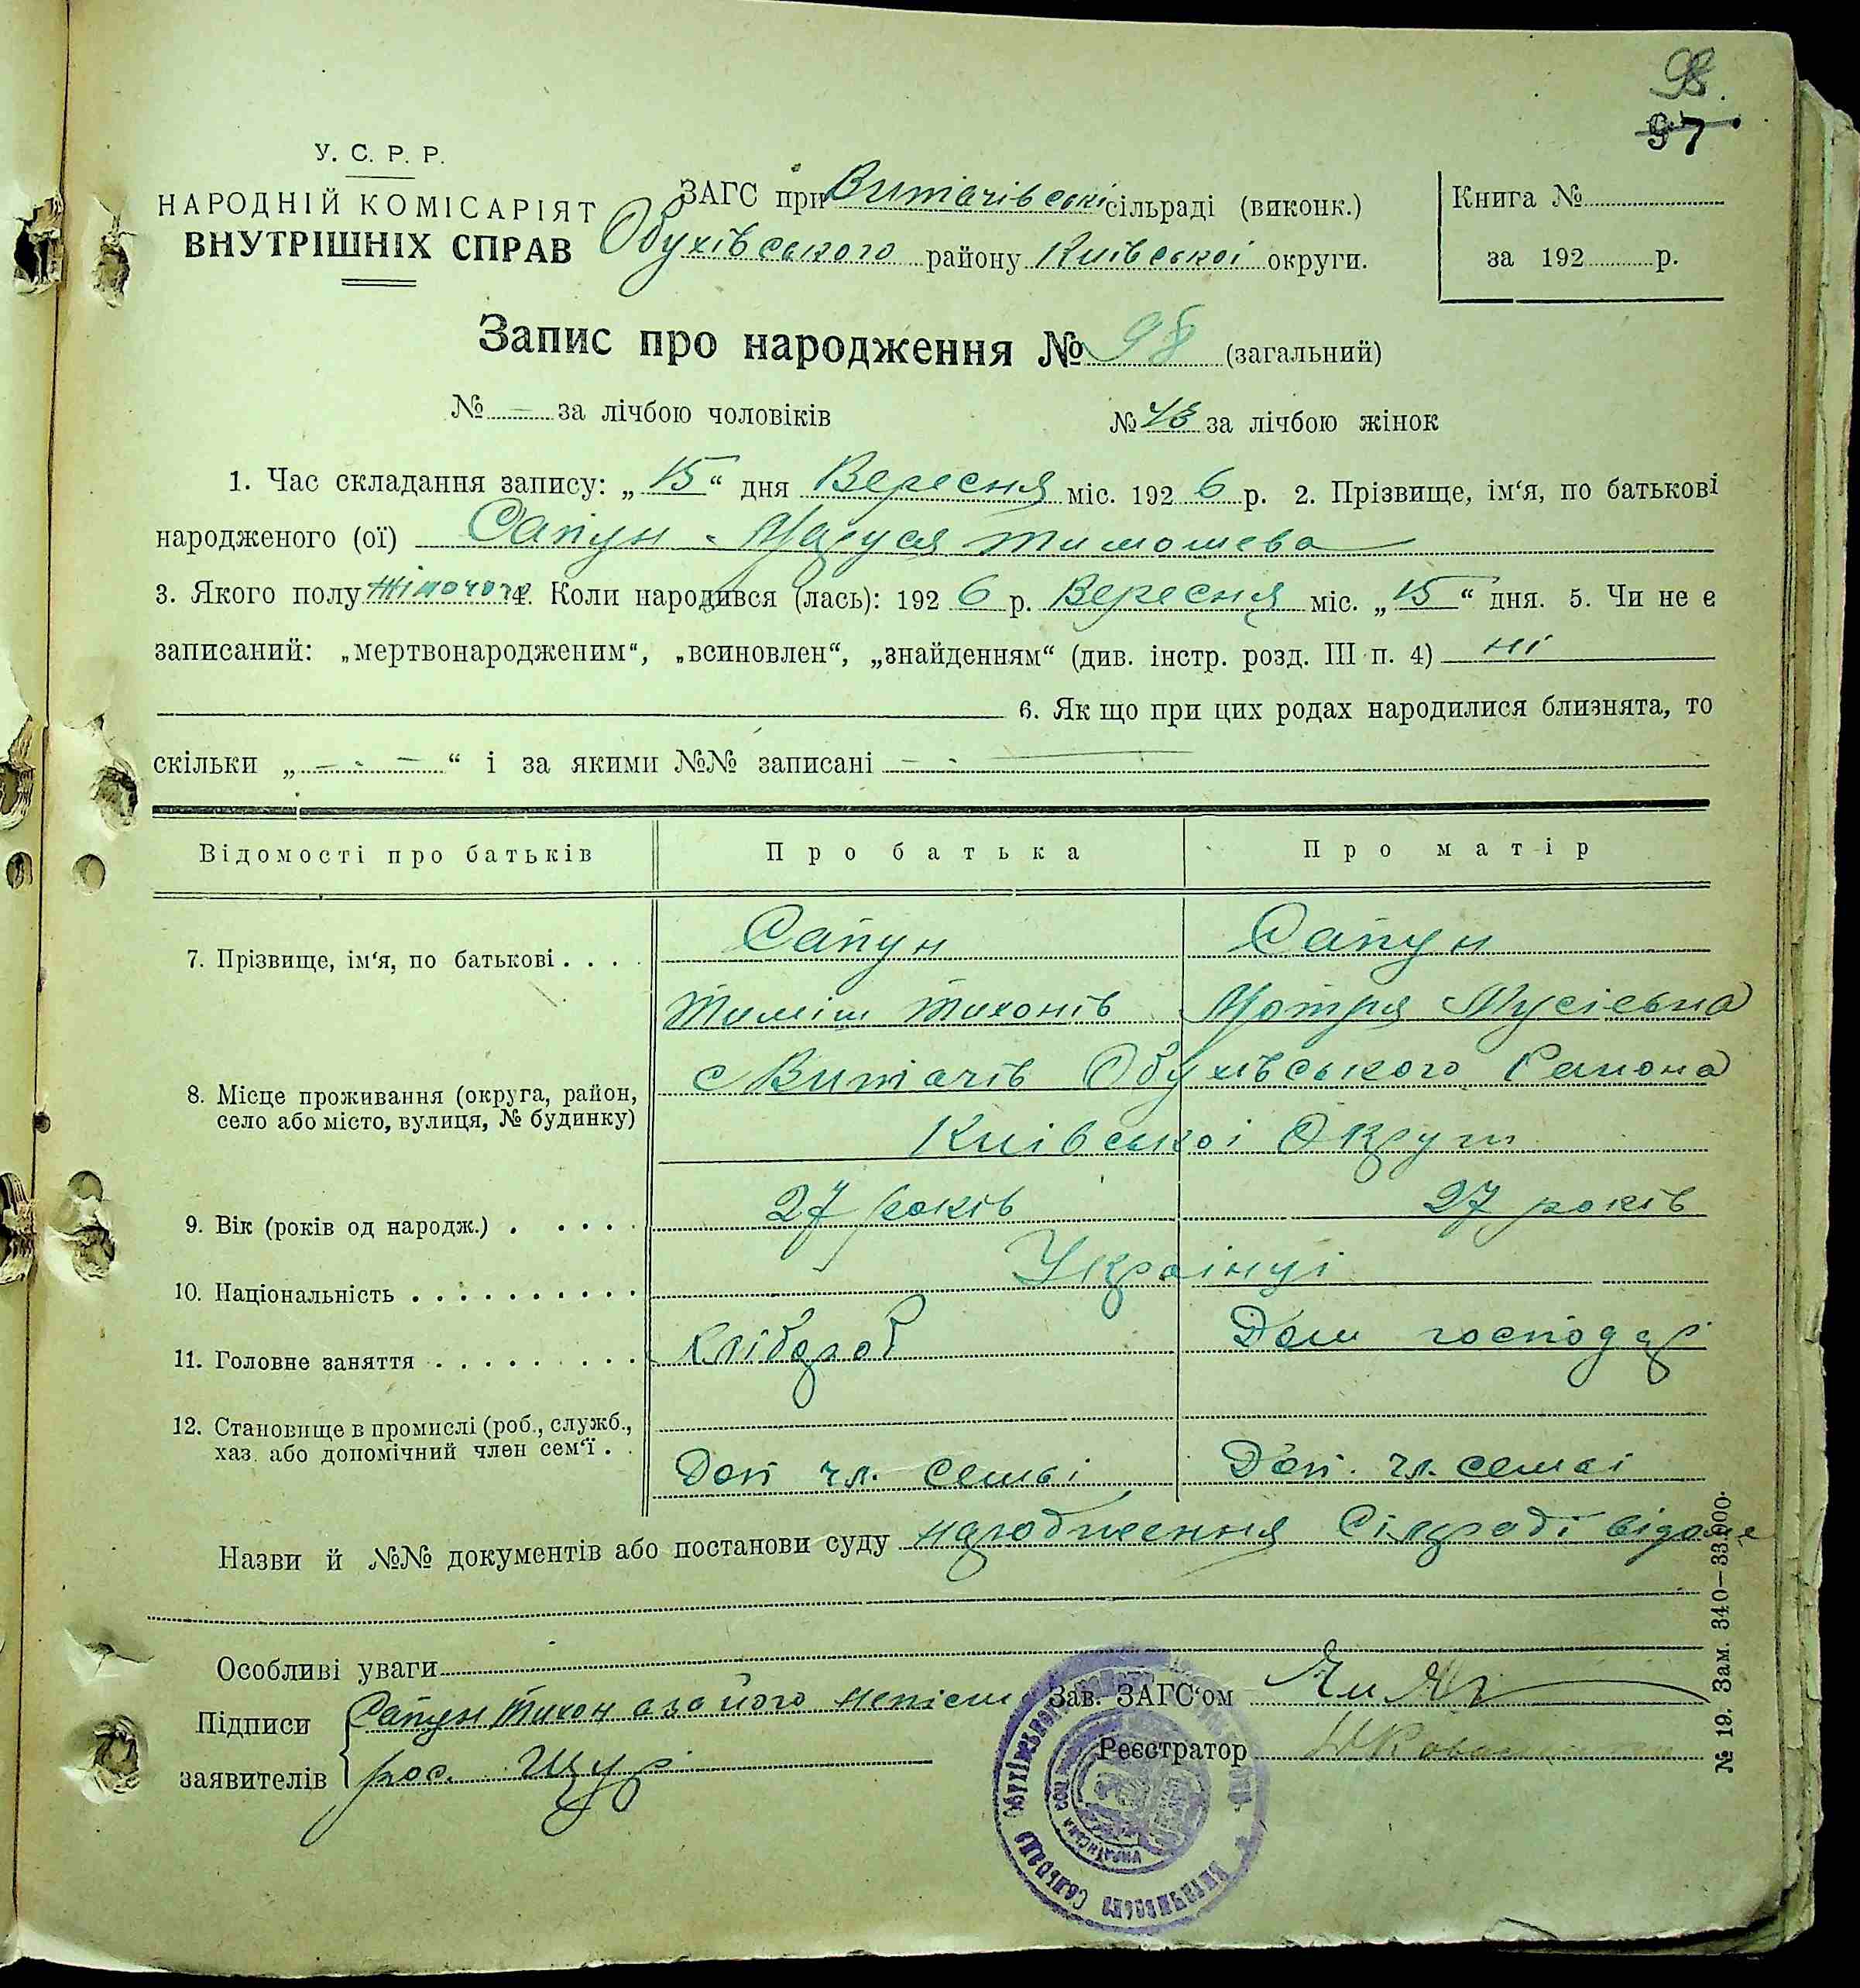 98.
97
У. С. Р. Р.
НАРОДНІЙ КОМІСАРІЯТ
ВНУТРІШНІХ СПРАВ
ЗАГС при Витачівські сільраді (виконк.)
Обухівського району Київскої округи.
Книга №
за 192 р.
Запис про народження № 98 (загальний)
№ — за лічбою чоловіків № 43 за лічбою жінок
1. Час складання запису: „15“ дня Вересня міс. 1926 р. 2. Прізвище, ім‘я, по батькові
народженого (ої) Сапун Маруся Тимошева
3. Якого полу жіночого 4. Коли народився (лась): 1926 р. Вересня міс. „15“ дня. 5. Чи не є
записаний: „мертвонародженим“, „всиновлен“, „знайденням“ (див. інстр. розд. III п. 4) ні
6. Як що при цих родах народилися близнята, то
скільки „— . —“ і за якими №№ записані — . —
Відомості про батьків Про батька Про матір
7. Прізвище, ім‘я, по батькові . . . . Сапун Сапун
Тиміш Тихонів Мотря Мусієвна
8. Місце проживання (округа, район, с Витачів Обухівського Района
село або місто, вулиця, № будинку)
Київської Округи
9. Вік (років од народж.) . . . . . 27 років 27 років
10. Національність . . . . . . . . . . Українці
11. Головне заняття . . . . . . . . . Хлібороб Дом господар
12. Становище в промислі (роб., служб.,
хаз. або допомічний член сем‘ї . . Доп чл. семьі Доп. чл. семьі
Назви й №№ документів або постанови суду народження Сілраді відоме
Особливі уваги
Підписи Сапун Тихон а за його непісьм
заявителів рос. Щур
Зав. ЗАГС‘ом
Реєстратор
№ 19. Зам. 340—33.000.